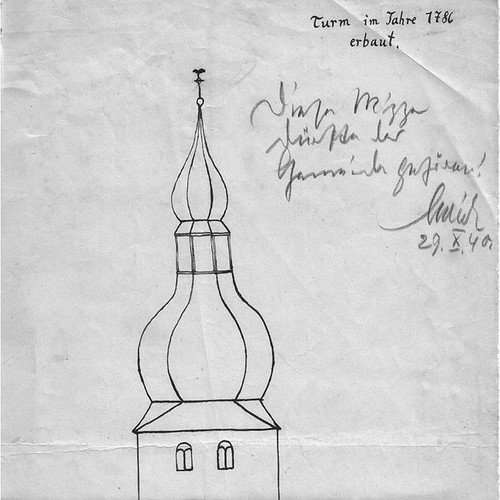 Turm im Jahre 1786
erbaut.
Diese Skizze
dürfte der
Gemeinde gehören!
29. X. 40.